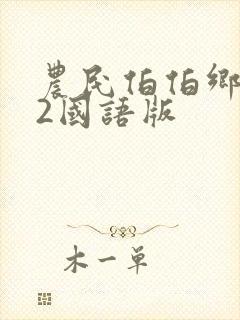 農民伯伯鄉
2國語版
木一單